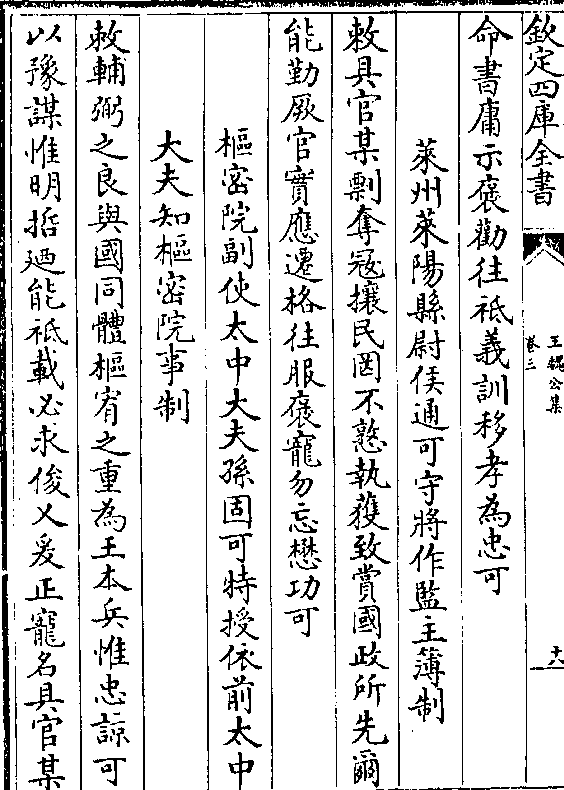 欽定四庫全書
王魏公集
卷三
十八
命書庸示褒勸往祗義訓移孝為忠可
萊州萊陽縣尉侯通可守將作監主簿制
敕具官某剽奪寇攘民罔不憝執獲致賞國政所先爾
能勤厥官實應遷格往服褒寵勿忘懋功可
樞密院副使太中大夫孫固可特授依前太中
大夫知樞密院事制
敕輔弼之良與國同體樞宥之重為王本兵惟忠諒可
以豫謀惟明哲廼能祗載必求俊乂爰正寵名具官某